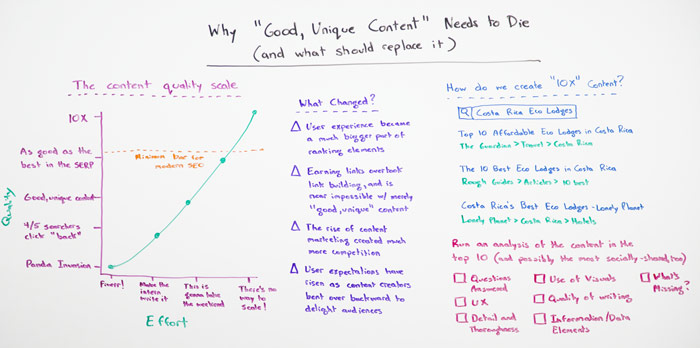 Why "Good, Unique Content" Needs to Die
(and what should replace it)
The content quality scale
Quality
10X
As good as the
best in the SERP
Good, unique content
4/5 searchers
click "back"
Panda Invasion
Minimum Bar for
modern SEO
Fiverr!
Make the
intern
write it
This is
gonna take
the weekend
There's no
way to
scale!
Effort
What Changed?
User experience became
a much bigger part of
ranking elements
Earning links overtook
link building, and is
near impossible w/ merely
"good, unique" content
The rise of content
marketing created much
more competition
User expectations have
risen as content creators
bent over backward to
delight audiences
How do we create "10X" Content?
Costa Rica Eco Lodges
Top 10 Affordable Eco Lodges in Costa Rica
The Guardian > Travel > Costa Rica
The 10 Best Eco Lodges in Costa Rica
Rough Guides > Articles > 10 best
Costa Rica's Best Eco Lodges - Lonely Planet
Lonely Planet > Costa Rica > Hotels
Run an analysis of the content in the
top 10 (and possibly the most socially-shared, too)
Questions
Answered
UX
Detail and
Thoroughness
Use of Visuals
Quality of writing
Information/Data
Elements
What's
Missing?